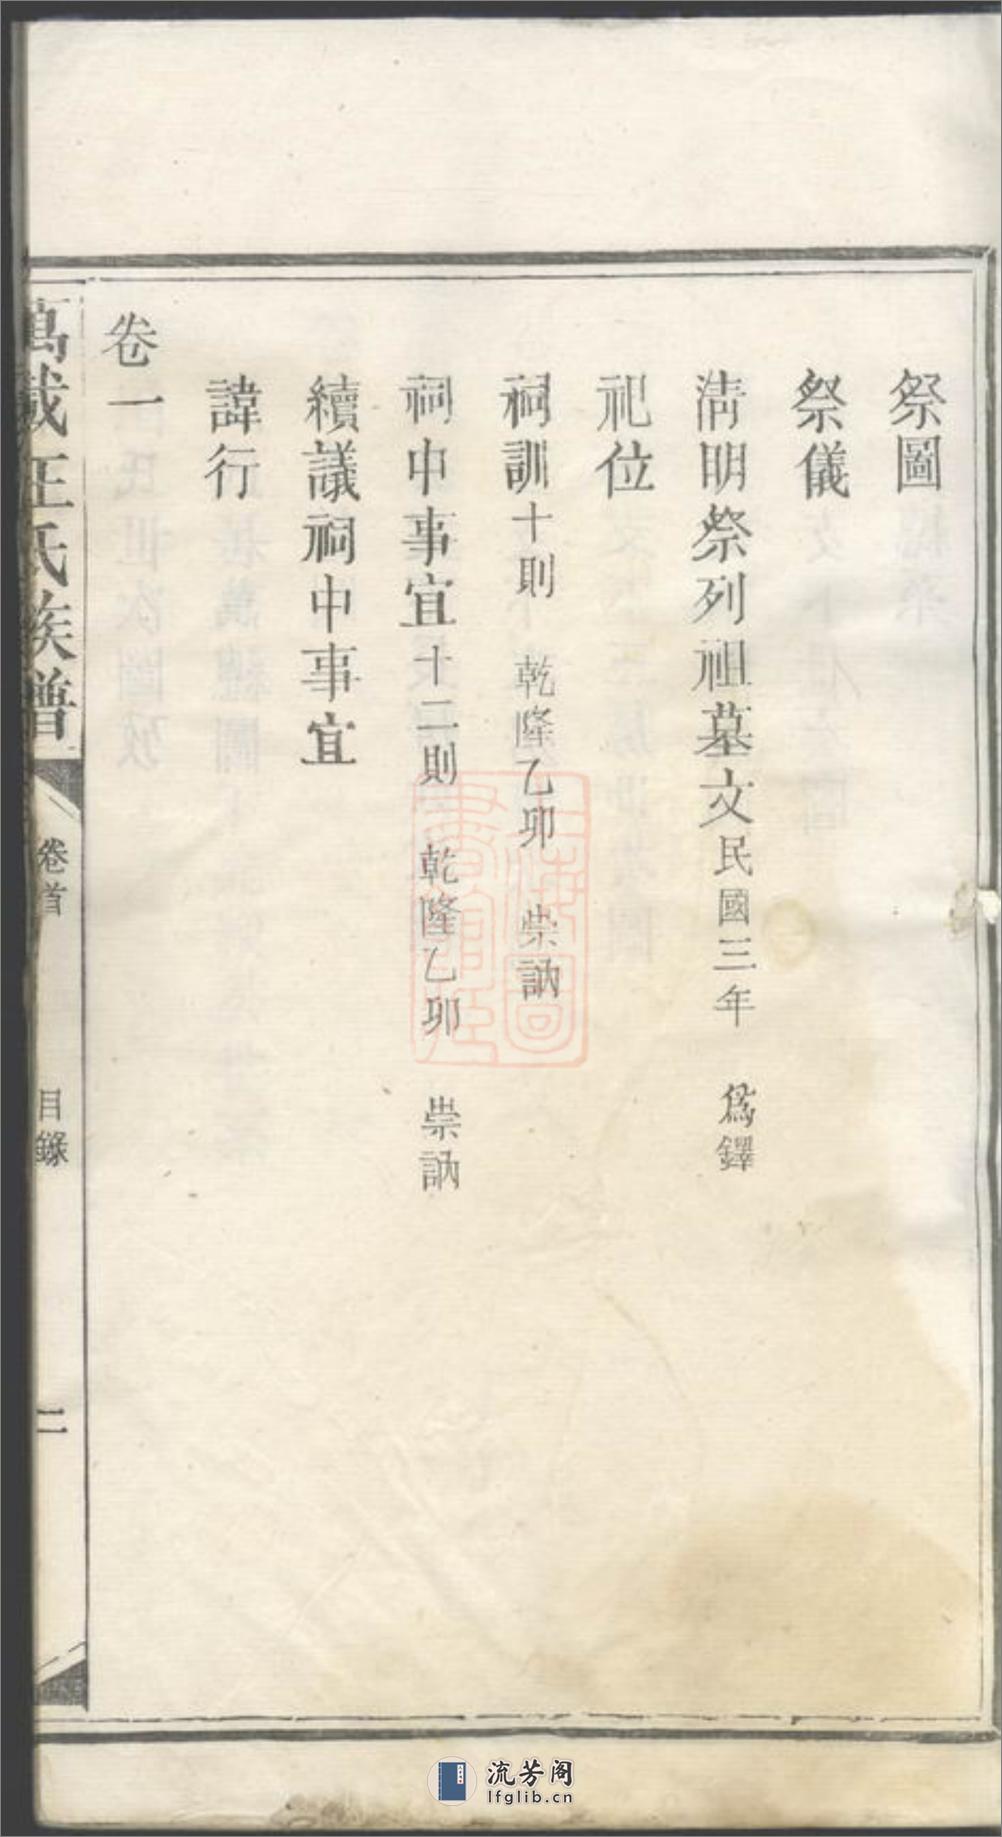 祭圖
祭儀
淸明祭列祖墓文民國三年 爲鐸
祀位
祠訓十則 乾隆乙卯 崇訥
祠中事宜十二則 乾隆乙卯 崇訥
續議祠中事宜
諱行
卷一
萬載王氏族譜 卷首 目錄 二
流芳阁
lfglib.cn